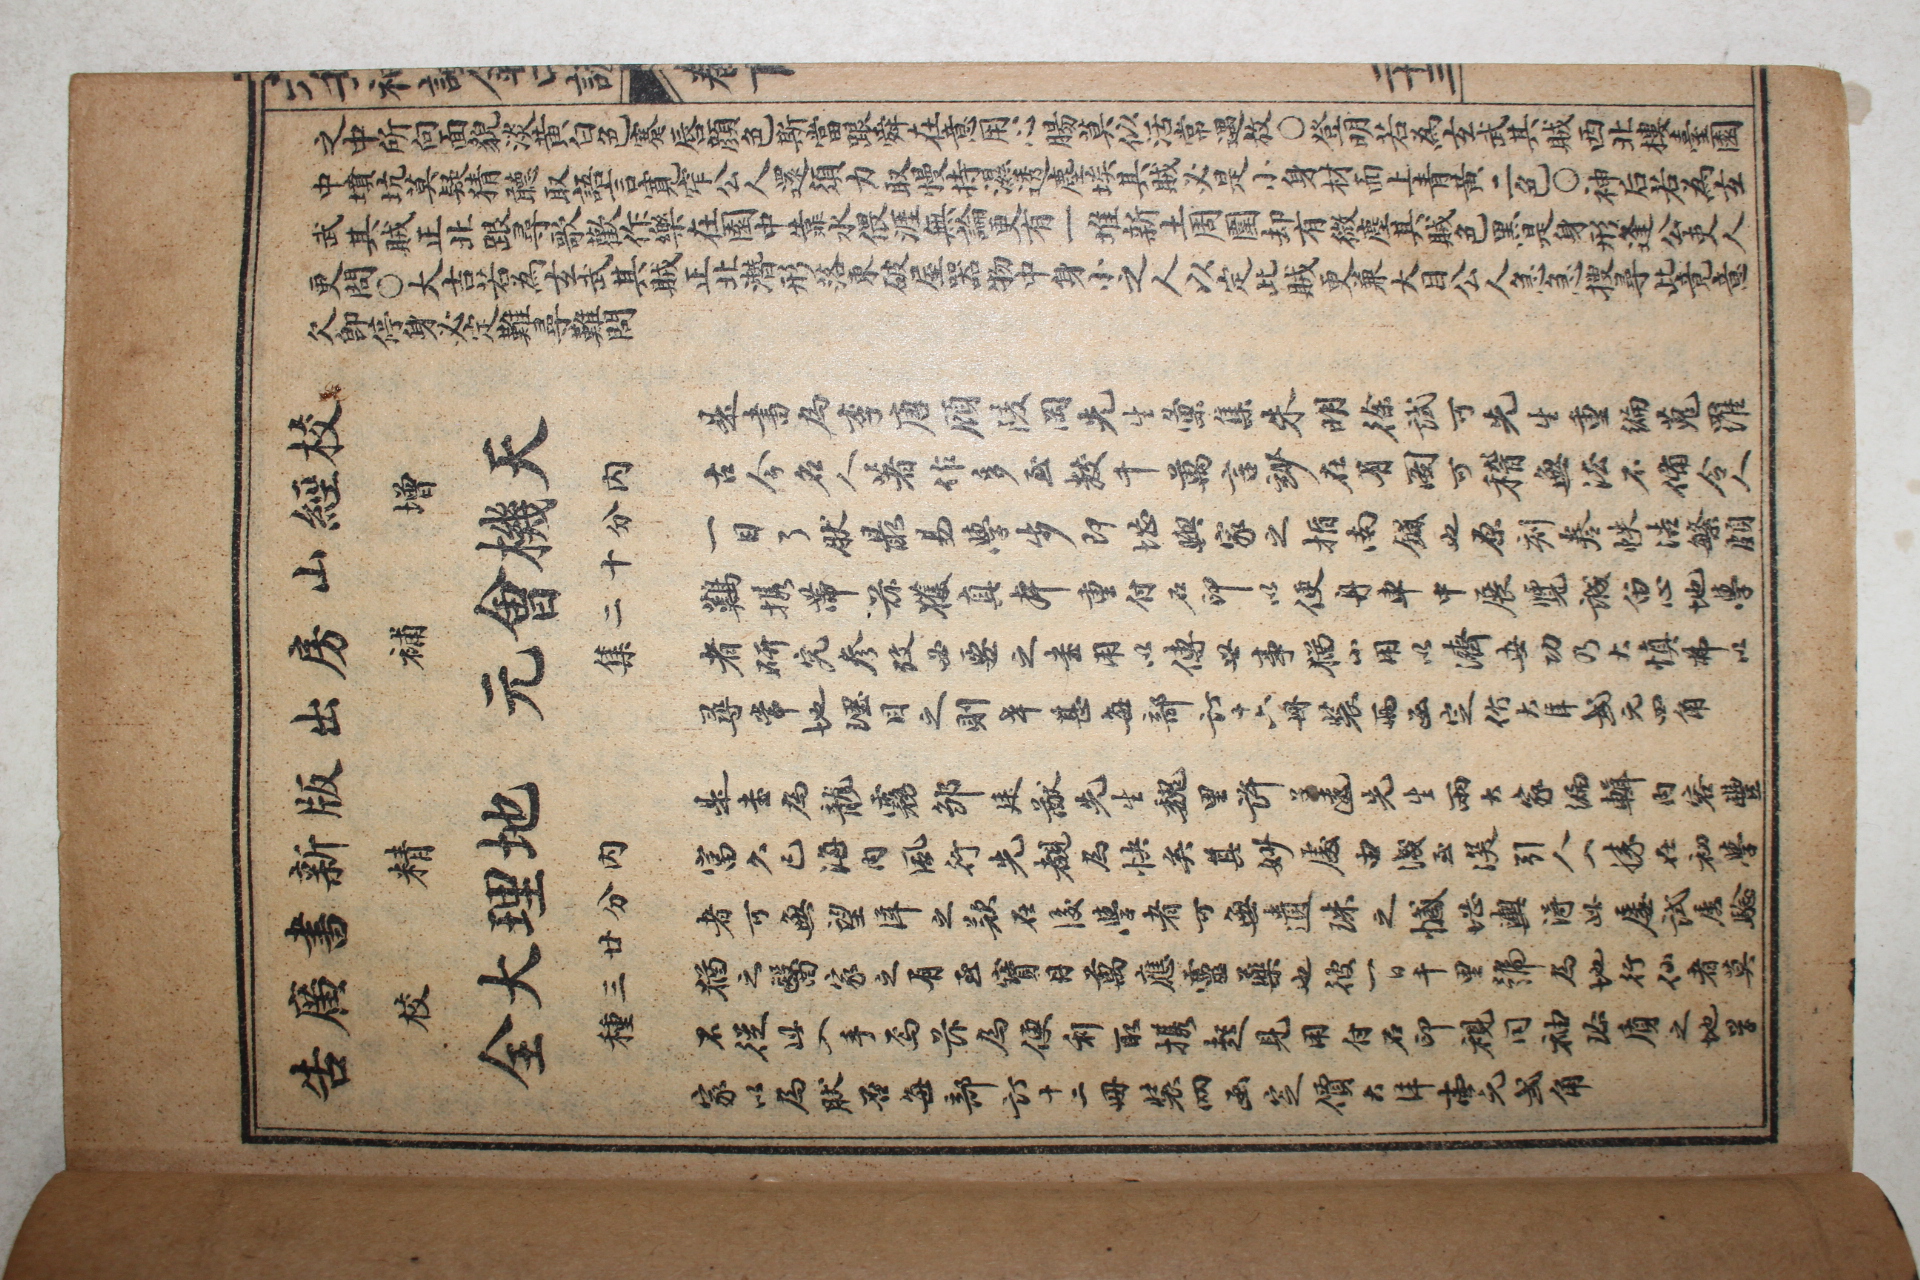 神課金口訣
卷下
二十三
之中所向面貌淡黃白色蹇唇顏色斯當跟舜在意用心腸莫似活常遇放〇登明若為玄武其賊西北樓臺園
中墳坑莫疑猜聽取語言寬窄公人還須力取慢持濕透塵埃其賊必是小身材面上青黃二色〇神后若為玄
武其賊正北跟尋歌歡作樂在園中靠水偎涯無論更有一堆新土周圍却有微塵其賊色黑是身形逢公吏人
更問〇大吉若為玄武其賊正北潛形落東破屋器物中身小之人以定此賊更兼大目公人急急搜尋此竟意
欠卽停身必定難尋難問
校經山房出版新書廣告
增補
天機會元
內分十二集
是書為李唐顧陵岡先生彙集朱明徐試可先生重編蒐羅
古今名人著作多至數千萬言訣在有圖可稽無法不備令人
一目了肰最易學步即堪輿家之指南鍼也原刻卷帙浩繁頗
難携帶茲獲真本重付石印以便舟車中展覽誠留心地學
者研究參攷必要之書用以傳世事猶小用以濟世功乃大慎弗以
尋常地理目之則幸甚每部訂十六冊裝兩函定價大洋弍元四角
精校
地理大全
內分廿三種
是書為龍霧邹廷猷先生魏里許 遠先生兩大家編輯內容豐
富久已海內風行先覩為快矣其妙處由淺至深引人入勝在初學
者可無望洋之歎在後學者可無遺珠之憾堪輿得此屢試屢驗
猶之醫家之有至寶丹萬應靈藥也彼一日千里號為地行仙者莫
不從此入手焉茲為便利取携起見用付石印視同袖珍質之地學
家以為肰否每部訂十二冊裝兩函定價大洋壹元弍角